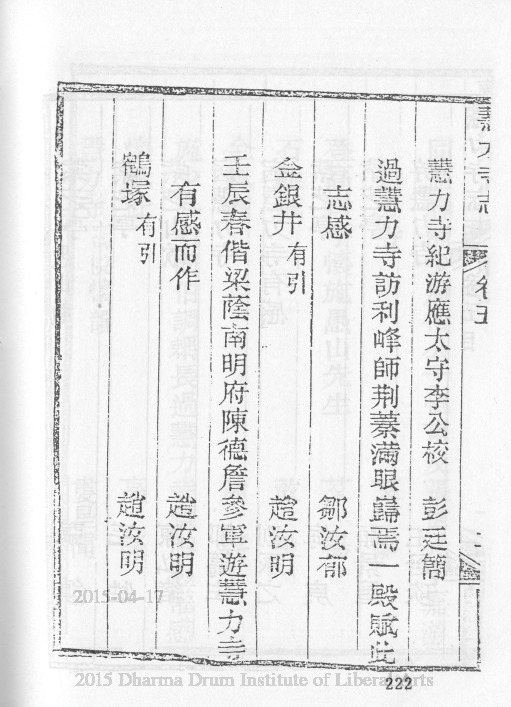 慧力寺志 卷五
慧力寺紀游應太守李公校 彭廷簡
過慧力寺訪利峰師荆蓁滿眼巋焉一殿賦此
志感 鄒汝郁
金銀井有引 趙汝明
壬辰春偕梁蔭南明府陳德詹參軍遊慧力寺
有感而作 趙汝明
鶴塚有引 趙汝明
2015-04-17
222
2015 Dharma Drum Institute of Liberal Arts